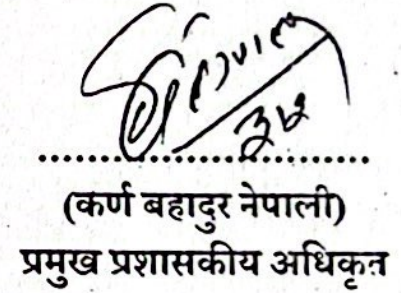 (कर्ण बहादुर नेपाली)
प्रमुख प्रशासकीय अधिकृत